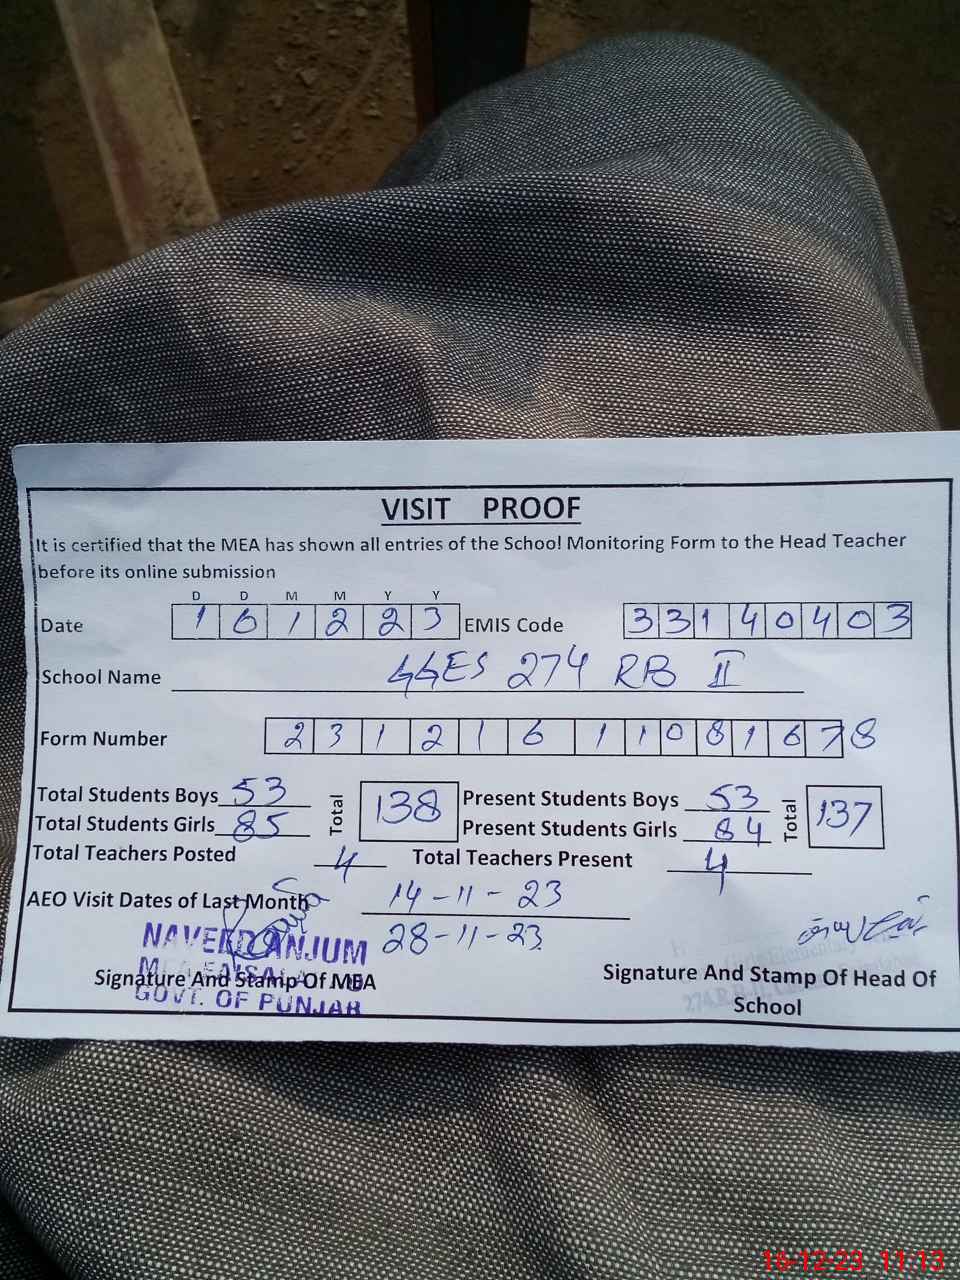 VISIT PROOF
It is certified that the MEA has shown all entries of the School Monitoring Form to the Head Teacher
before its online submission
D D M M Y Y
Date 1 6 1 2 2 3 EMIS Code 3 3 1 4 0 4 0 3
School Name GGES 274 RB II
Form Number 2 3 1 2 1 6 1 1 0 8 1 6 7 8
Total Students Boys 53 Total 138 Present Students Boys 53 Total 137
Total Students Girls 85 Present Students Girls 84
Total Teachers Posted 4 Total Teachers Present 4
AEO Visit Dates of Last Month 14-11-23
28-11-23
NAVEED ANJUM
MEA FAISALABAD
GOVT. OF PUNJAB
Signature And Stamp Of MEA
Signature And Stamp Of Head Of
School
16-12-23 11:13